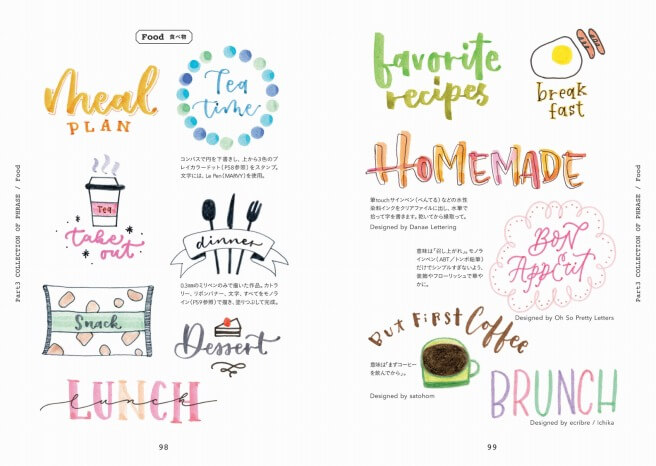 Food 食べ物
meal
PLAN
Tea
time
コンパスで円を下書きし、上から3色のプ
レイカラードット（P58参照）をスタンプ。
文字には、Le Pen（MARVY）を使用。
Tea
take
out
dinner
0.3㎜のミリペンのみで描いた作品。カトラ
リー、リボンバナー、文字、すべてをモノラ
イン（P59参照）で描き、塗りつぶして完成。
Snack
Dessert
LUNCH
Part3 COLLECTION OF PHRASE / Food
98
favorite
recipes
break
fast
HOMEMADE
筆touchサインペン（ぺんてる）などの水性
染料インクをクリアファイルに出し、水筆で
拾って字を書きます。乾いてから縁取って。
Designed by Danae Lettering
BON
Appétit
意味は「召し上がれ」。モノラ
インペン（ABT／トンボ鉛筆）
だけでシンプルすぎないよう、
装飾やフローリッシュで華や
かに。
Designed by Oh So Pretty Letters
But First Coffee
意味は「まずコーヒー
を飲んでから」。
Designed by satohom
BRUNCH
Designed by ecribre / Ichika
Part3 COLLECTION OF PHRASE / Food
99